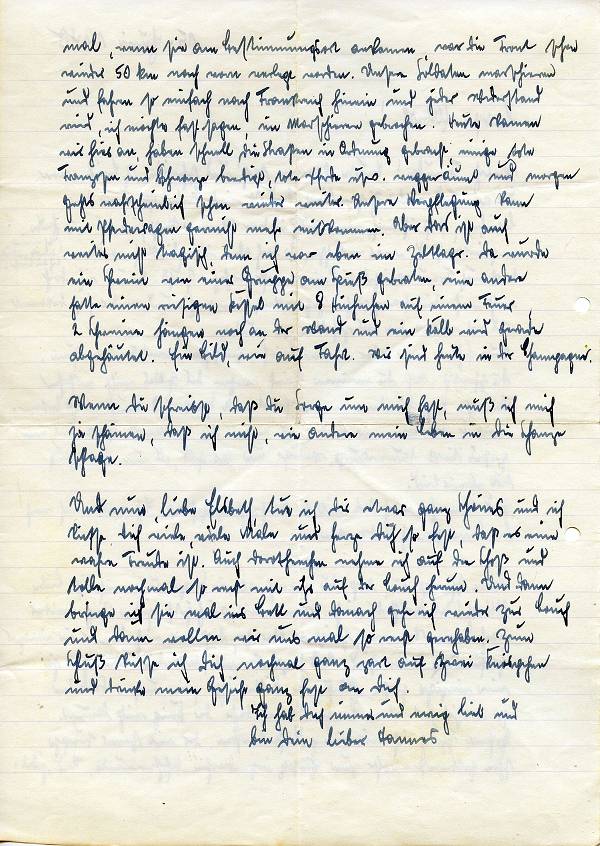 mal, wenn sie am Bestimmungsort ankamen, war die Front schon
wieder 50 km nach vorn verlegt worden. Unsere Soldaten marschieren
und fahren so einfach nach Frankreich hinein und jeder Widerstand
wird, ich möchte fast sagen, im Marschieren gebrochen. Heute kamen
wir hier an, haben schnell die Strassen in Ordnung gebracht, einige tote
Franzosen und Schwarze beerdigt, tote Pferde usw. weggeräumt und morgen
gehts wahrscheinlich schon wieder weiter. Unsere Verpflegung kann
mit Pferdewagen garnicht mehr mitkommen. Aber das ist auch
weiter nicht tragisch, denn ich war eben im Zeltlager. Da wurde
ein Schwein von einer Gruppe am Spieß gebraten, eine andere
hatte einen riesigen Kessel mit 8 Hühnchen auf einem Feuer,
2 Schweine hängen noch an der Wand und ein Kalb wird gerade
abgehäutet. Ein Bild, wie auf Fahrt. Wir sind heute in der Champagne.
Wenn Du schreibst, daß Du Sorge um mich hast, muß ich mich
ja schämen, daß ich nicht, wie andere mein Leben in die Schanze
schlage.
Und nun, liebe Elsbeth, tue ich Dir etwas ganz Schönes und ich
küsse Dich viele, viele Male und herze Dich so fest, daß es eine
wahre Freude ist. Auch Dorothechen nehme ich auf den Schoß und
tolle nochmal so recht mit ihr auf der Couch herum. Und dann
bringe ich sie mal ins Bett und danach gehe ich wieder zur Couch
und dann wollen wir uns mal so recht gernhaben. Zum
Schluß küsse ich Dich nochmal ganz zart auf zwei Knöspchen
und drücke mein Gesicht ganz fest an Dich.
Ich hab Dich immer und ewig lieb und
bin Dein lieber Hannes